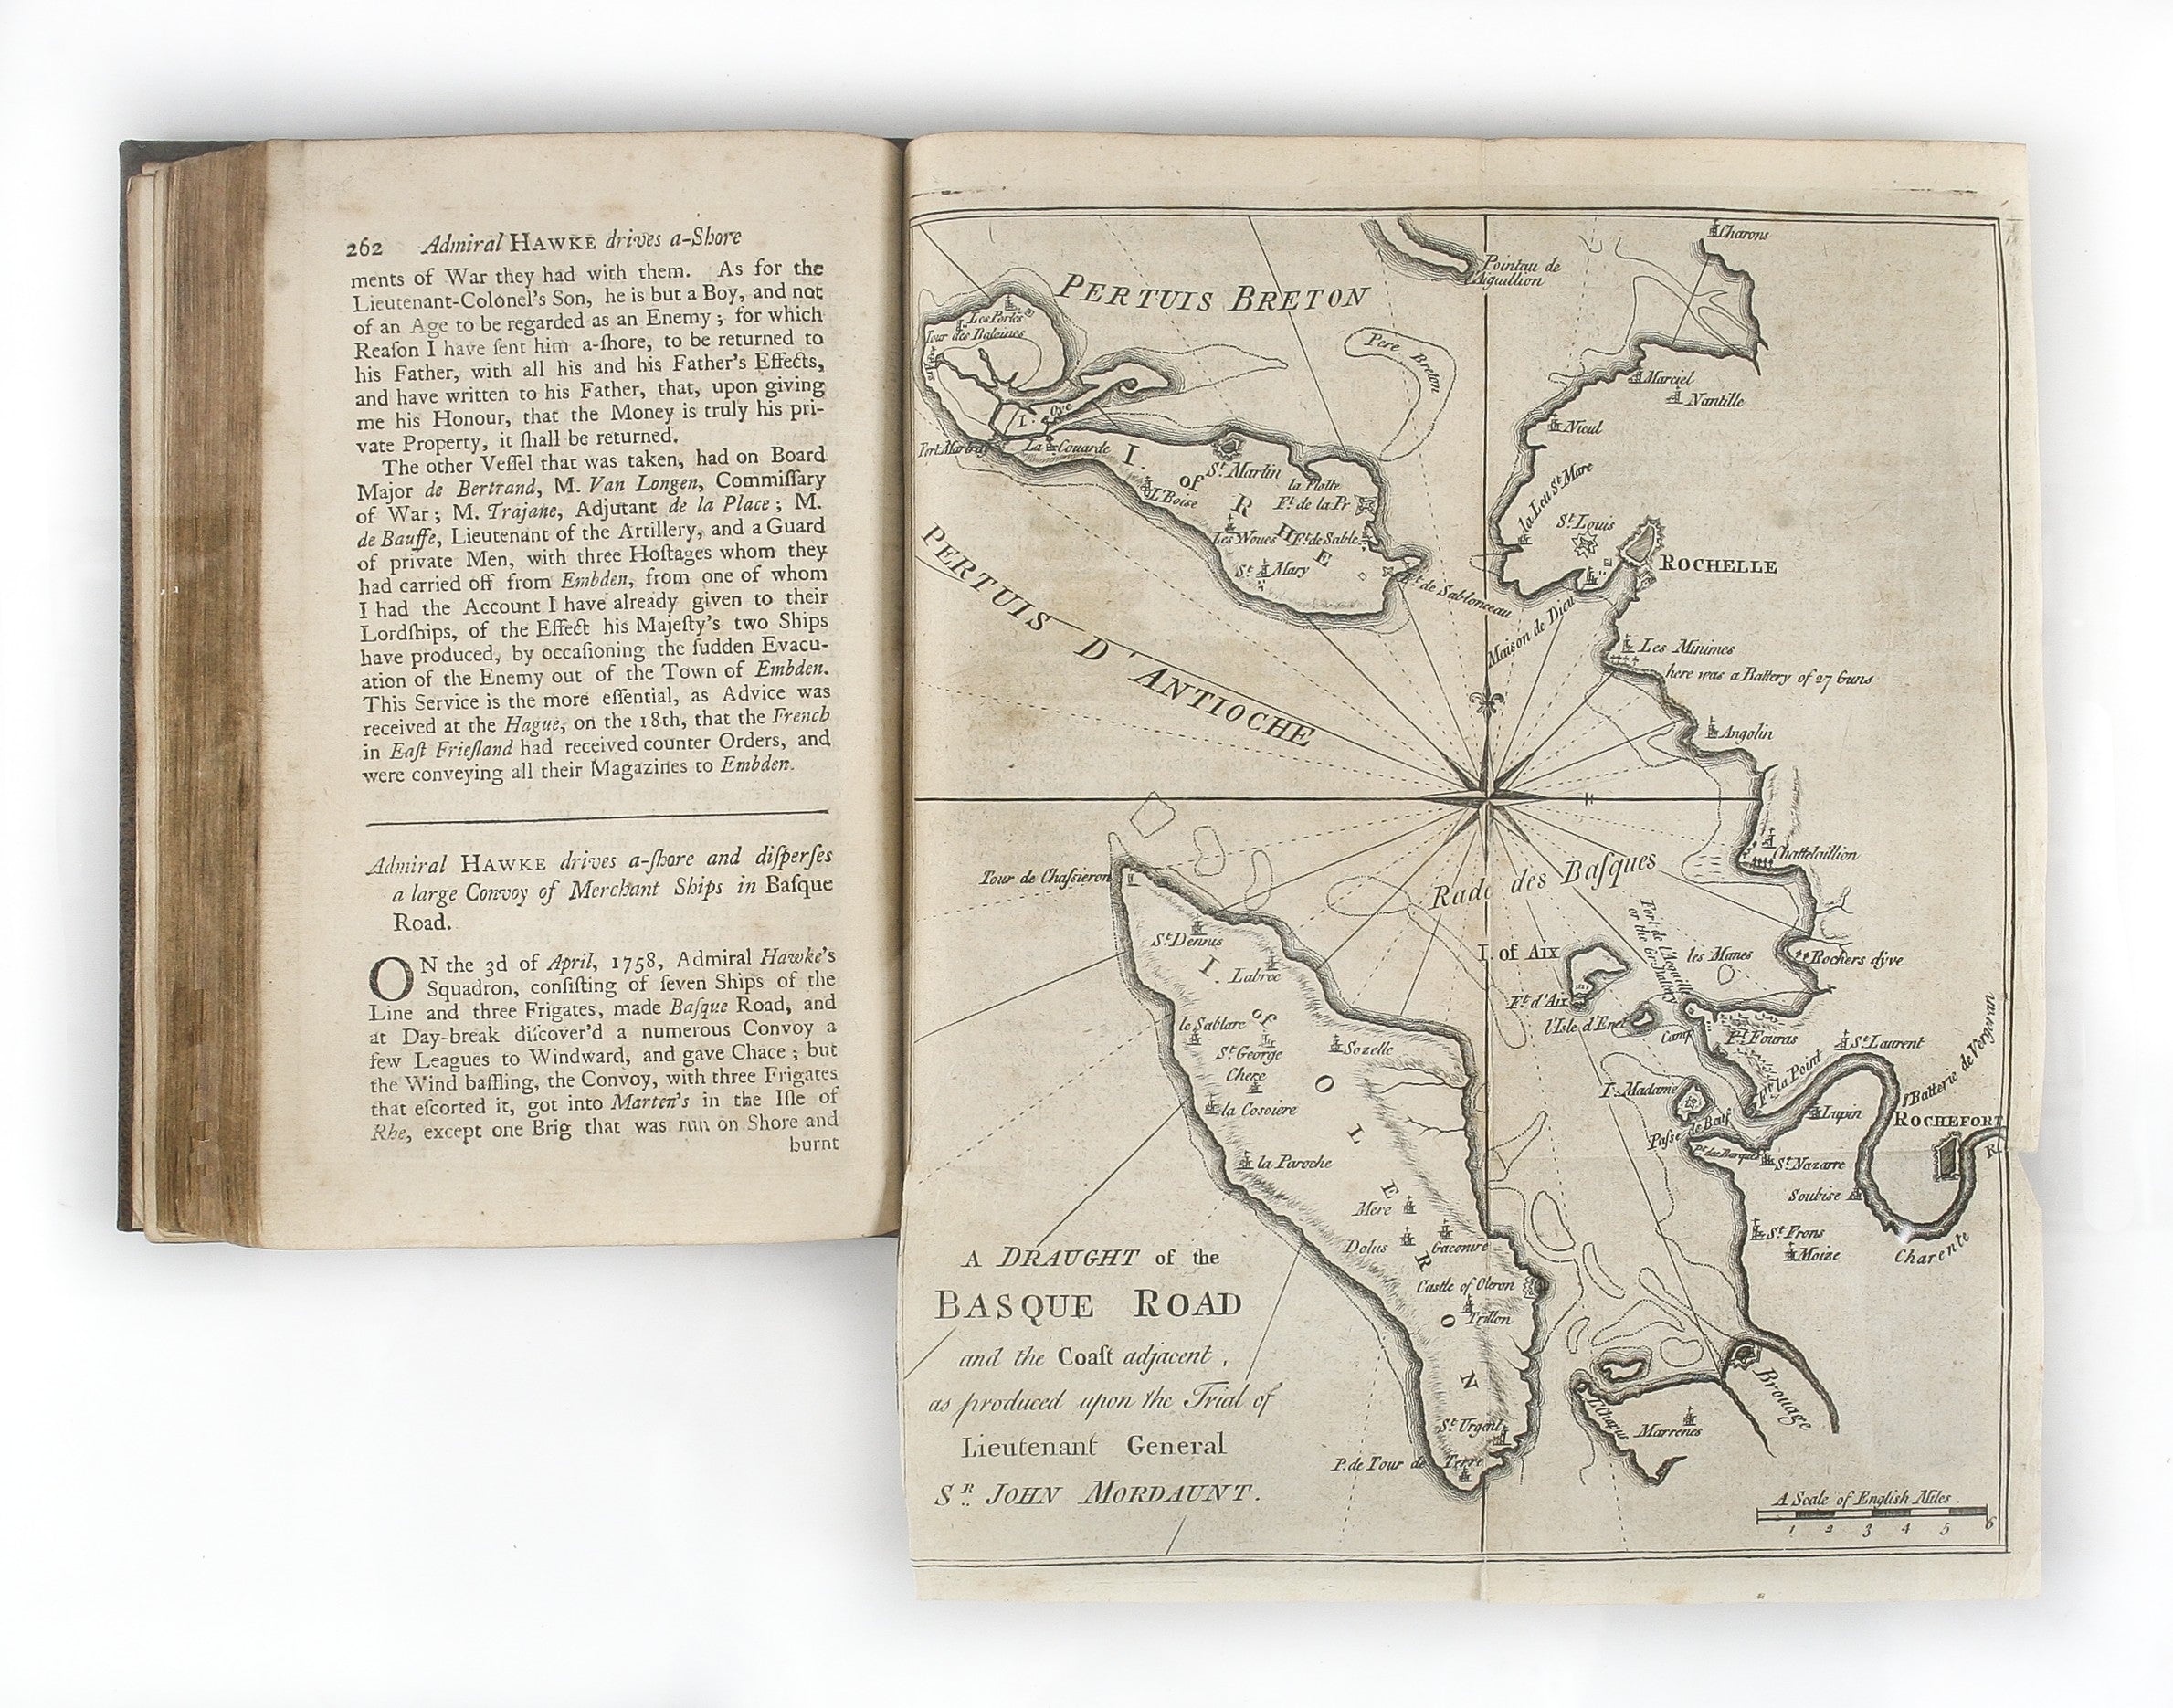 262 Admiral HAWKE drives a-Shore
ments of War they had with them. As for the
Lieutenant-Colonel's Son, he is but a Boy, and not
of an Age to be regarded as an Enemy; for which
Reaſon I have ſent him a-ſhore, to be returned to
his Father, with all his and his Father's Effects,
and have written to his Father, that, upon giving
me his Honour, that the Money is truly his pri-
vate Property, it ſhall be returned.
The other Veſſel that was taken, had on Board
Major de Bertrand, M. Van Longen, Commiſſary
of War; M. Trajane, Adjutant de la Place; M.
de Bauffe, Lieutenant of the Artillery, and a Guard
of private Men, with three Hoſtages whom they
had carried off from Embden, from one of whom
I had the Account I have already given to their
Lordſhips, of the Effect his Majeſty's two Ships
have produced, by occaſioning the ſudden Evacu-
ation of the Enemy out of the Town of Embden.
This Service is the more eſſential, as Advice was
received at the Hague, on the 18th, that the French
in Eaſt Frieſland had received counter Orders, and
were conveying all their Magazines to Embden.
Admiral HAWKE drives a-ſhore and diſperſes
a large Convoy of Merchant Ships in Baſque
Road.
ON the 3d of April, 1758, Admiral Hawke's
Squadron, conſiſting of ſeven Ships of the
Line and three Frigates, made Baſque Road, and
at Day-break diſcover'd a numerous Convoy a
few Leagues to Windward, and gave Chace; but
the Wind baffling, the Convoy, with three Frigates
that eſcorted it, got into Marten's in the Iſle of
Rhe, except one Brig that was run on Shore and
burnt
Charons
Pointau de
l'Aiguillion
PERTUIS BRETON
Les Portes
Tour des Baleines
Ars
Pere Breton
I. Oye
Fort Martray
La Couarde
I. of RHE
St. Martin
la Flotte
L'Boise
Ft. de la Pr
Les Noues
Ft. de Sable
St. Mary
Pt. de Sablonceau
Marciel
Nantille
Nieul
la Leu St. Mare
St. Louis
ROCHELLE
Maison de Dieu
Les Minimes
here was a Battery of 27 Guns
PERTUIS D'ANTIOCHE
Angolin
Chattelaillion
Tour de Chaſsieron
Rade des Baſques
St. Dennis
I. of OLERON
Labree
I. of AIX
les Manes
Rochers dÿve
Fort de l'Aeguille
or the Gr. Battery
Ft. d'Aix
l'Isle d'Enet
Camp
Pt. Fouras
le Sablare
St. George
Sozelle
Chere
la Cosoiere
St. Laurent
Ft. la Point
I. Madame
Lupin
Batterie de Vergeran
ROCHEFORT
R.
Paſse de Baſ
Pt. des Barques
St. Nazarre
Soubise
la Paroche
Mere
Dolus
Gaconire
St. Frons
Moize
Charente
Castle of Oleron
Trillon
Brouage
L'Chapus
Marrenes
St. Urgent
P. de Tour de Terre
A DRAUGHT of the
BASQUE ROAD
and the Coaſt adjacent,
as produced upon the Trial of
Lieutenant General
SR. JOHN MORDAUNT.
A Scale of English Miles.
1 2 3 4 5 6